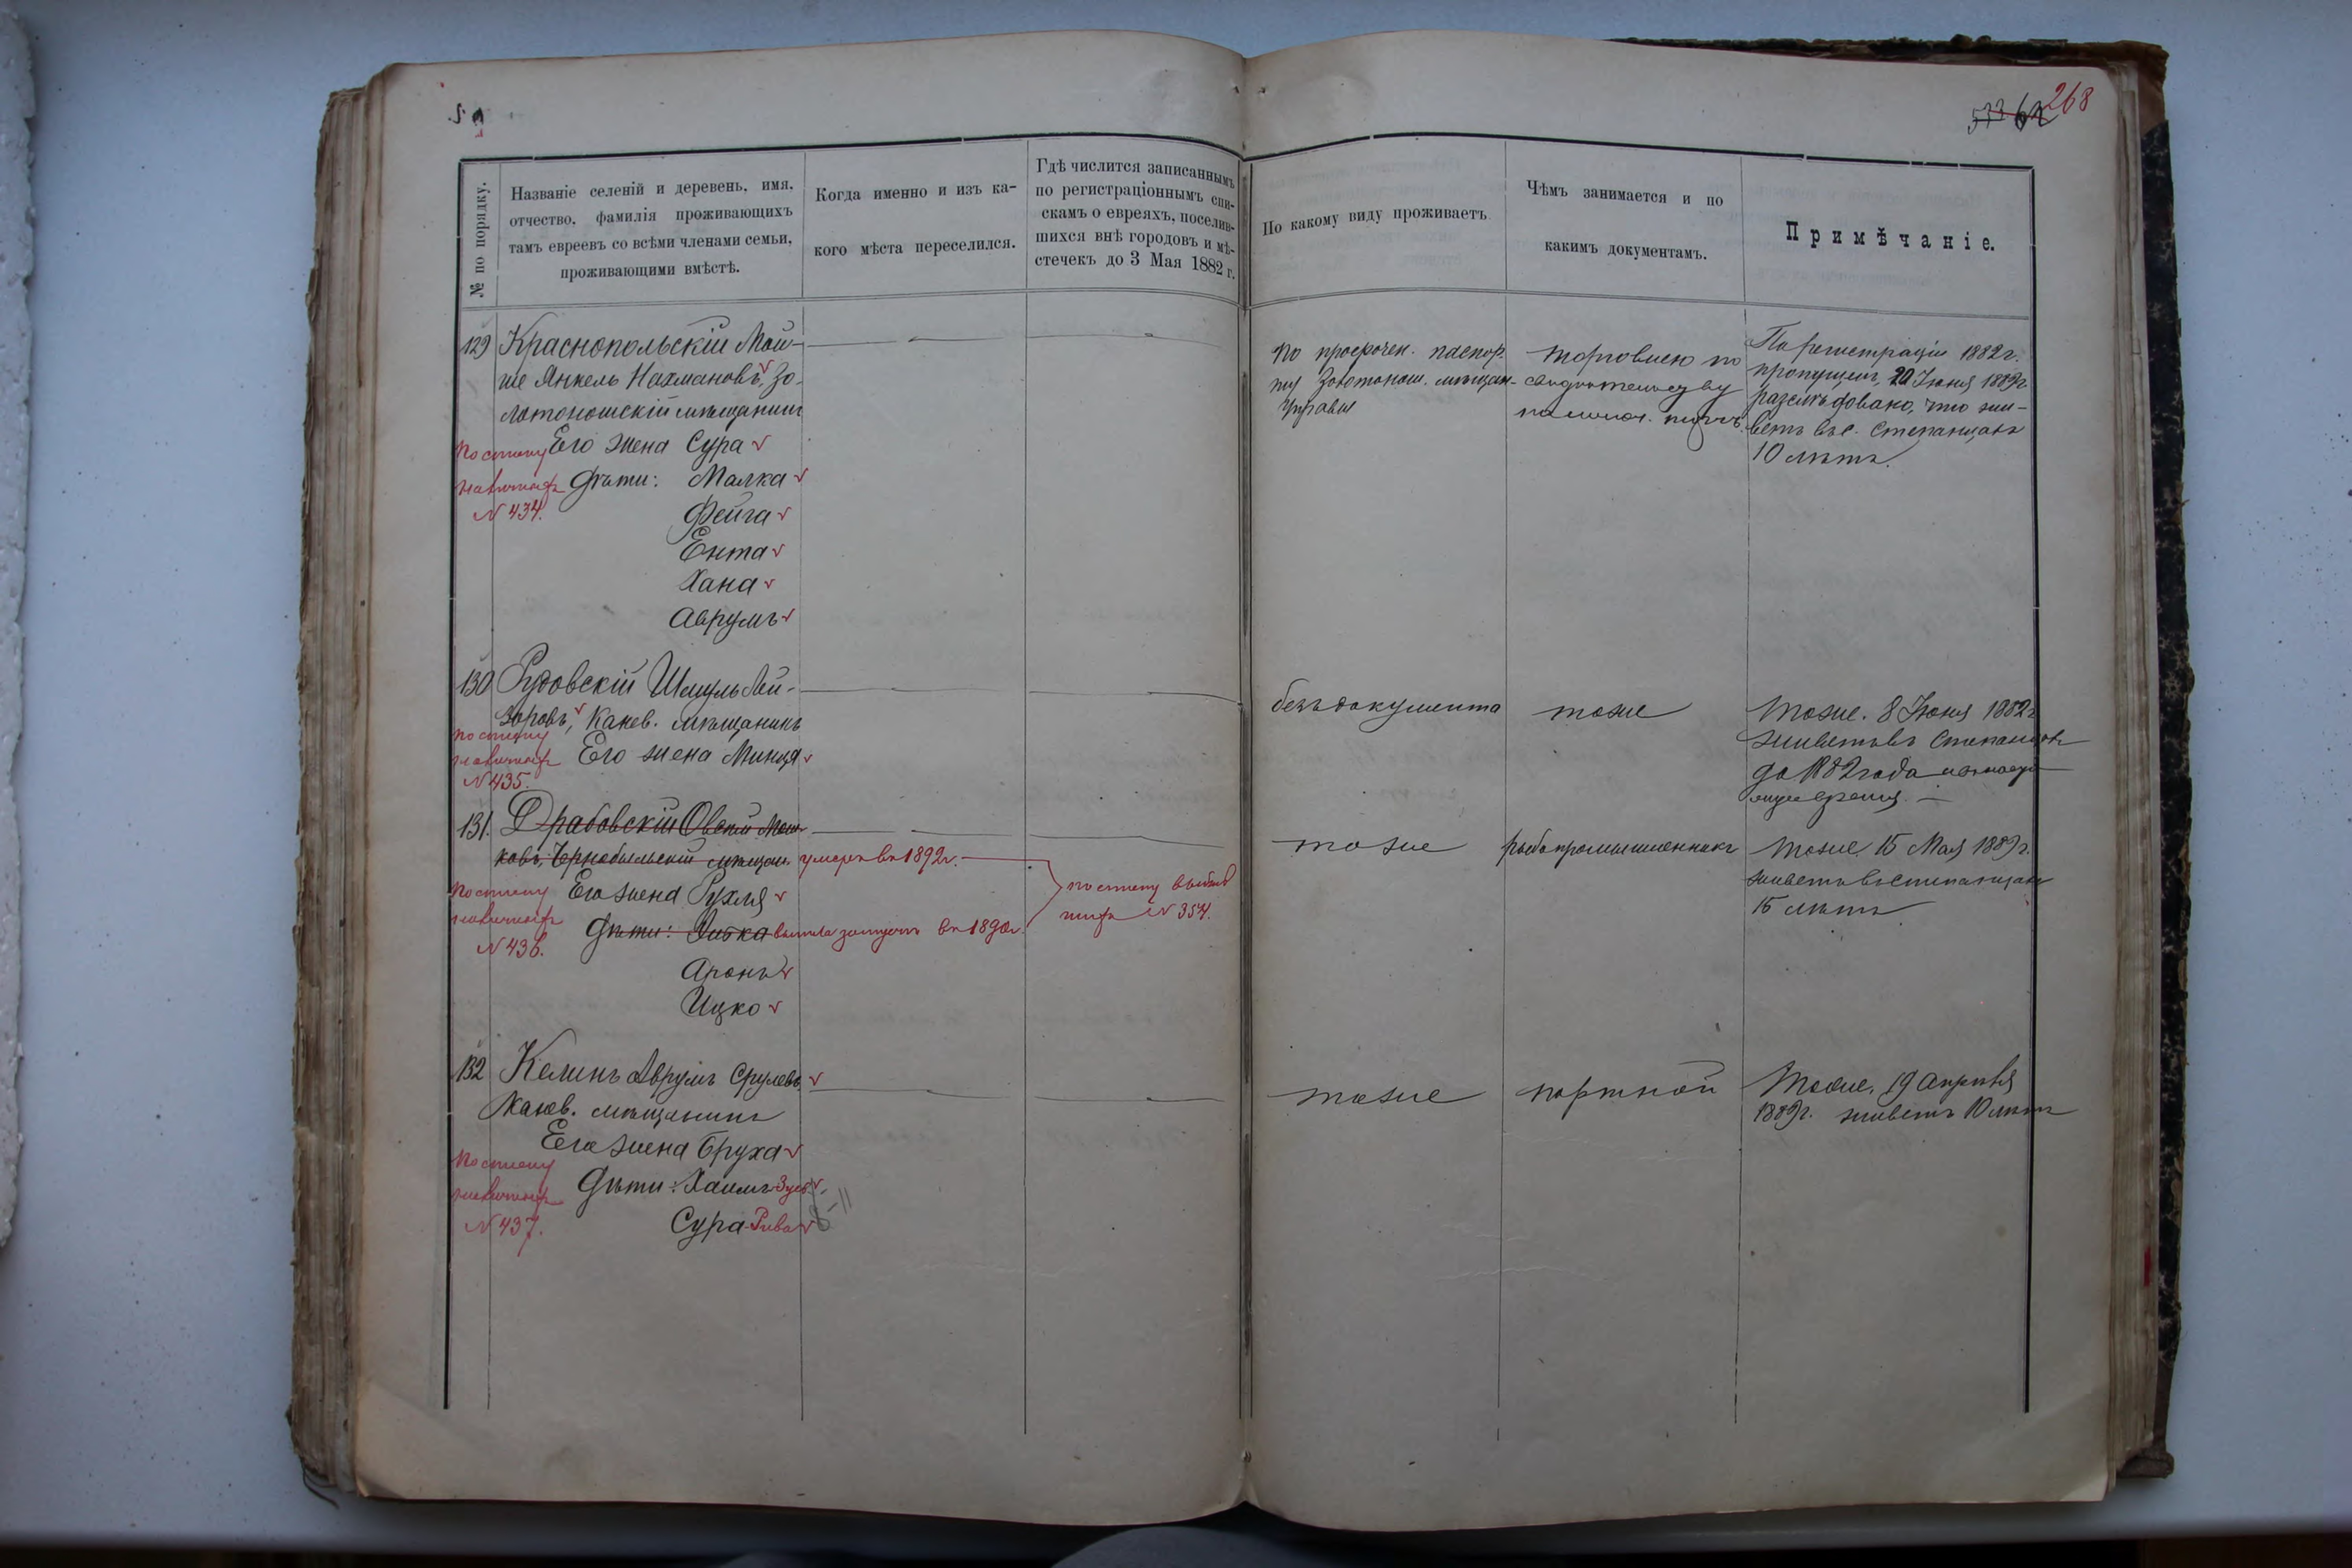 268
533 62
№ по порядку.
Названіе селеній и деревень, имя,
отчество, фамилія проживающихъ
тамъ евреевъ со всѣми членами семьи,
проживающими вмѣстѣ.
Когда именно и изъ ка-
кого мѣста переселился.
Гдѣ числится записаннымъ
по регистраціоннымъ спи-
скамъ о евреяхъ, поселив-
шихся внѣ городовъ и мѣ-
стечекъ до 3 Мая 1882 г.
По какому виду проживаетъ
Чѣмъ занимается и по
какимъ документамъ.
Примѣчаніе.
129 Краснопольскій Мош-
ше Янкель Нахмановъ, Зо-
лотоношскій мѣщанинъ
Его жена Сура
Дѣти: Малка
Фейга
Ента
Хана
Аврумъ
По списку
№ 434.
по просрочен. паспор-
ту Золотонош. мѣщан.
Управы
торговлею по
свидѣтельству
По регистраціи 1882 г.
пропущенъ, 20 Іюня 1889 г.
разслѣдовано, что жи-
ветъ въ с. Степанцахъ
10 лѣтъ.
130 Рудовскій Шмуль Лей-
зоровъ, Канев. мѣщанинъ
Его жена Минця
по списку
№ 435.
безъ документа
тоже
Тоже. 8 Іюня 1882 г.
живетъ въ Степанцахъ
до 1882 года
131. Драбовскій Овсей Мош-
ковъ, Чернобыльскій мѣщан. умеръ въ 1892 г.
Его жена Рухля
Дѣти: вышла замужъ въ 1890 г.
Аронъ
Ицко
по списку
№ 436.
по списку выбыв
шихъ № 354.
тоже
рыбопромышленникъ
Тоже. 15 Мая 1889 г.
живетъ въ Степанцахъ
15 лѣтъ
132 Келинъ Аврумъ Срулевъ
Канев. мѣщанинъ
Его жена Бруха
Дѣти: Хаимъ-Зус.
Сура-Рива
По списку
№ 437.
тоже
портной
Тоже. 19 Апрѣля
1889 г. живетъ 10 лѣтъ